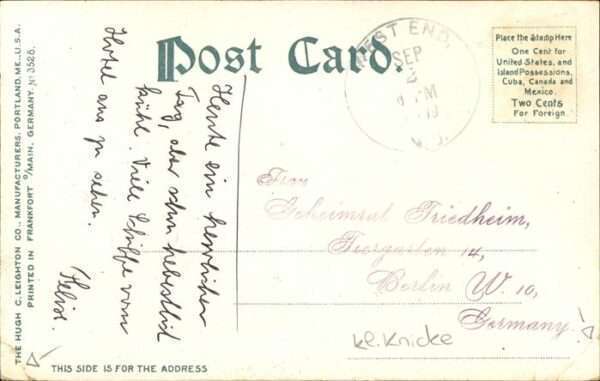 Post Card.
WEST END,
SEP
PM
N.J.
Place the Stamp Here
One Cent for
United States, and
Island Possessions,
Cuba, Canada and
Mexico.
Two Cents
For Foreign.
Heute ein herrlicher
Tag, aber schon herbstlich
kühl. Viele Schiffe vom
Hotel aus zu sehen.
Frau
Geheimrat Friedheim,
Tiergarten 14,
Berlin W. 10,
Germany!
kl. Knicke
THIS SIDE IS FOR THE ADDRESS
THE HUGH C. LEIGHTON CO., MANUFACTURERS, PORTLAND, ME., U.S.A.
PRINTED IN FRANKFORT o/MAIN, GERMANY. No 3526.